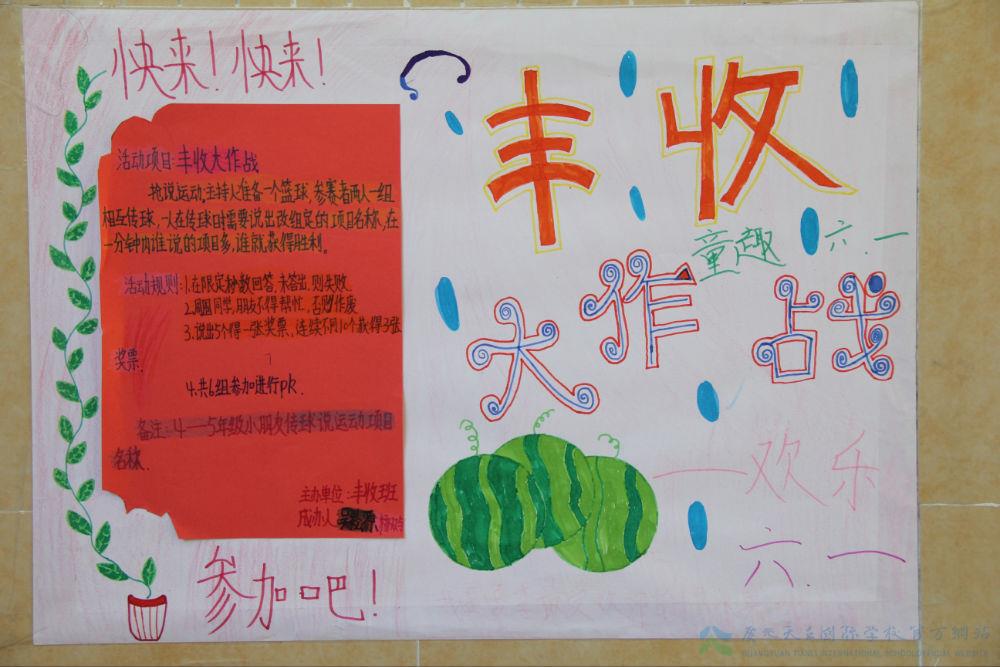 快来！快来！
活动项目：丰收大作战
抢说运动。主持人准备一个篮球，参赛者两人一组
相互传球，一人在传球时需要说出改组定的项目名称，在
一分钟内谁说的项目多，谁就获得胜利。
活动规则：1.在限定秒数回答，未答出，则失败
2.周围同学，朋友不得帮忙，否则作废
3.说出5个得一张奖票，连续不同10个获得3张
奖票.
4.共6组参加进行pk.
备注：4.—5年级小朋友传球说运动项目
名称.
主办单位：丰收班
参加吧！
丰收
童趣 六.一
大作战
——欢乐
六.一
GUANGYUAN TIANLI INTERNATIONAL SCHOOL OFFICIAL WEBSITE